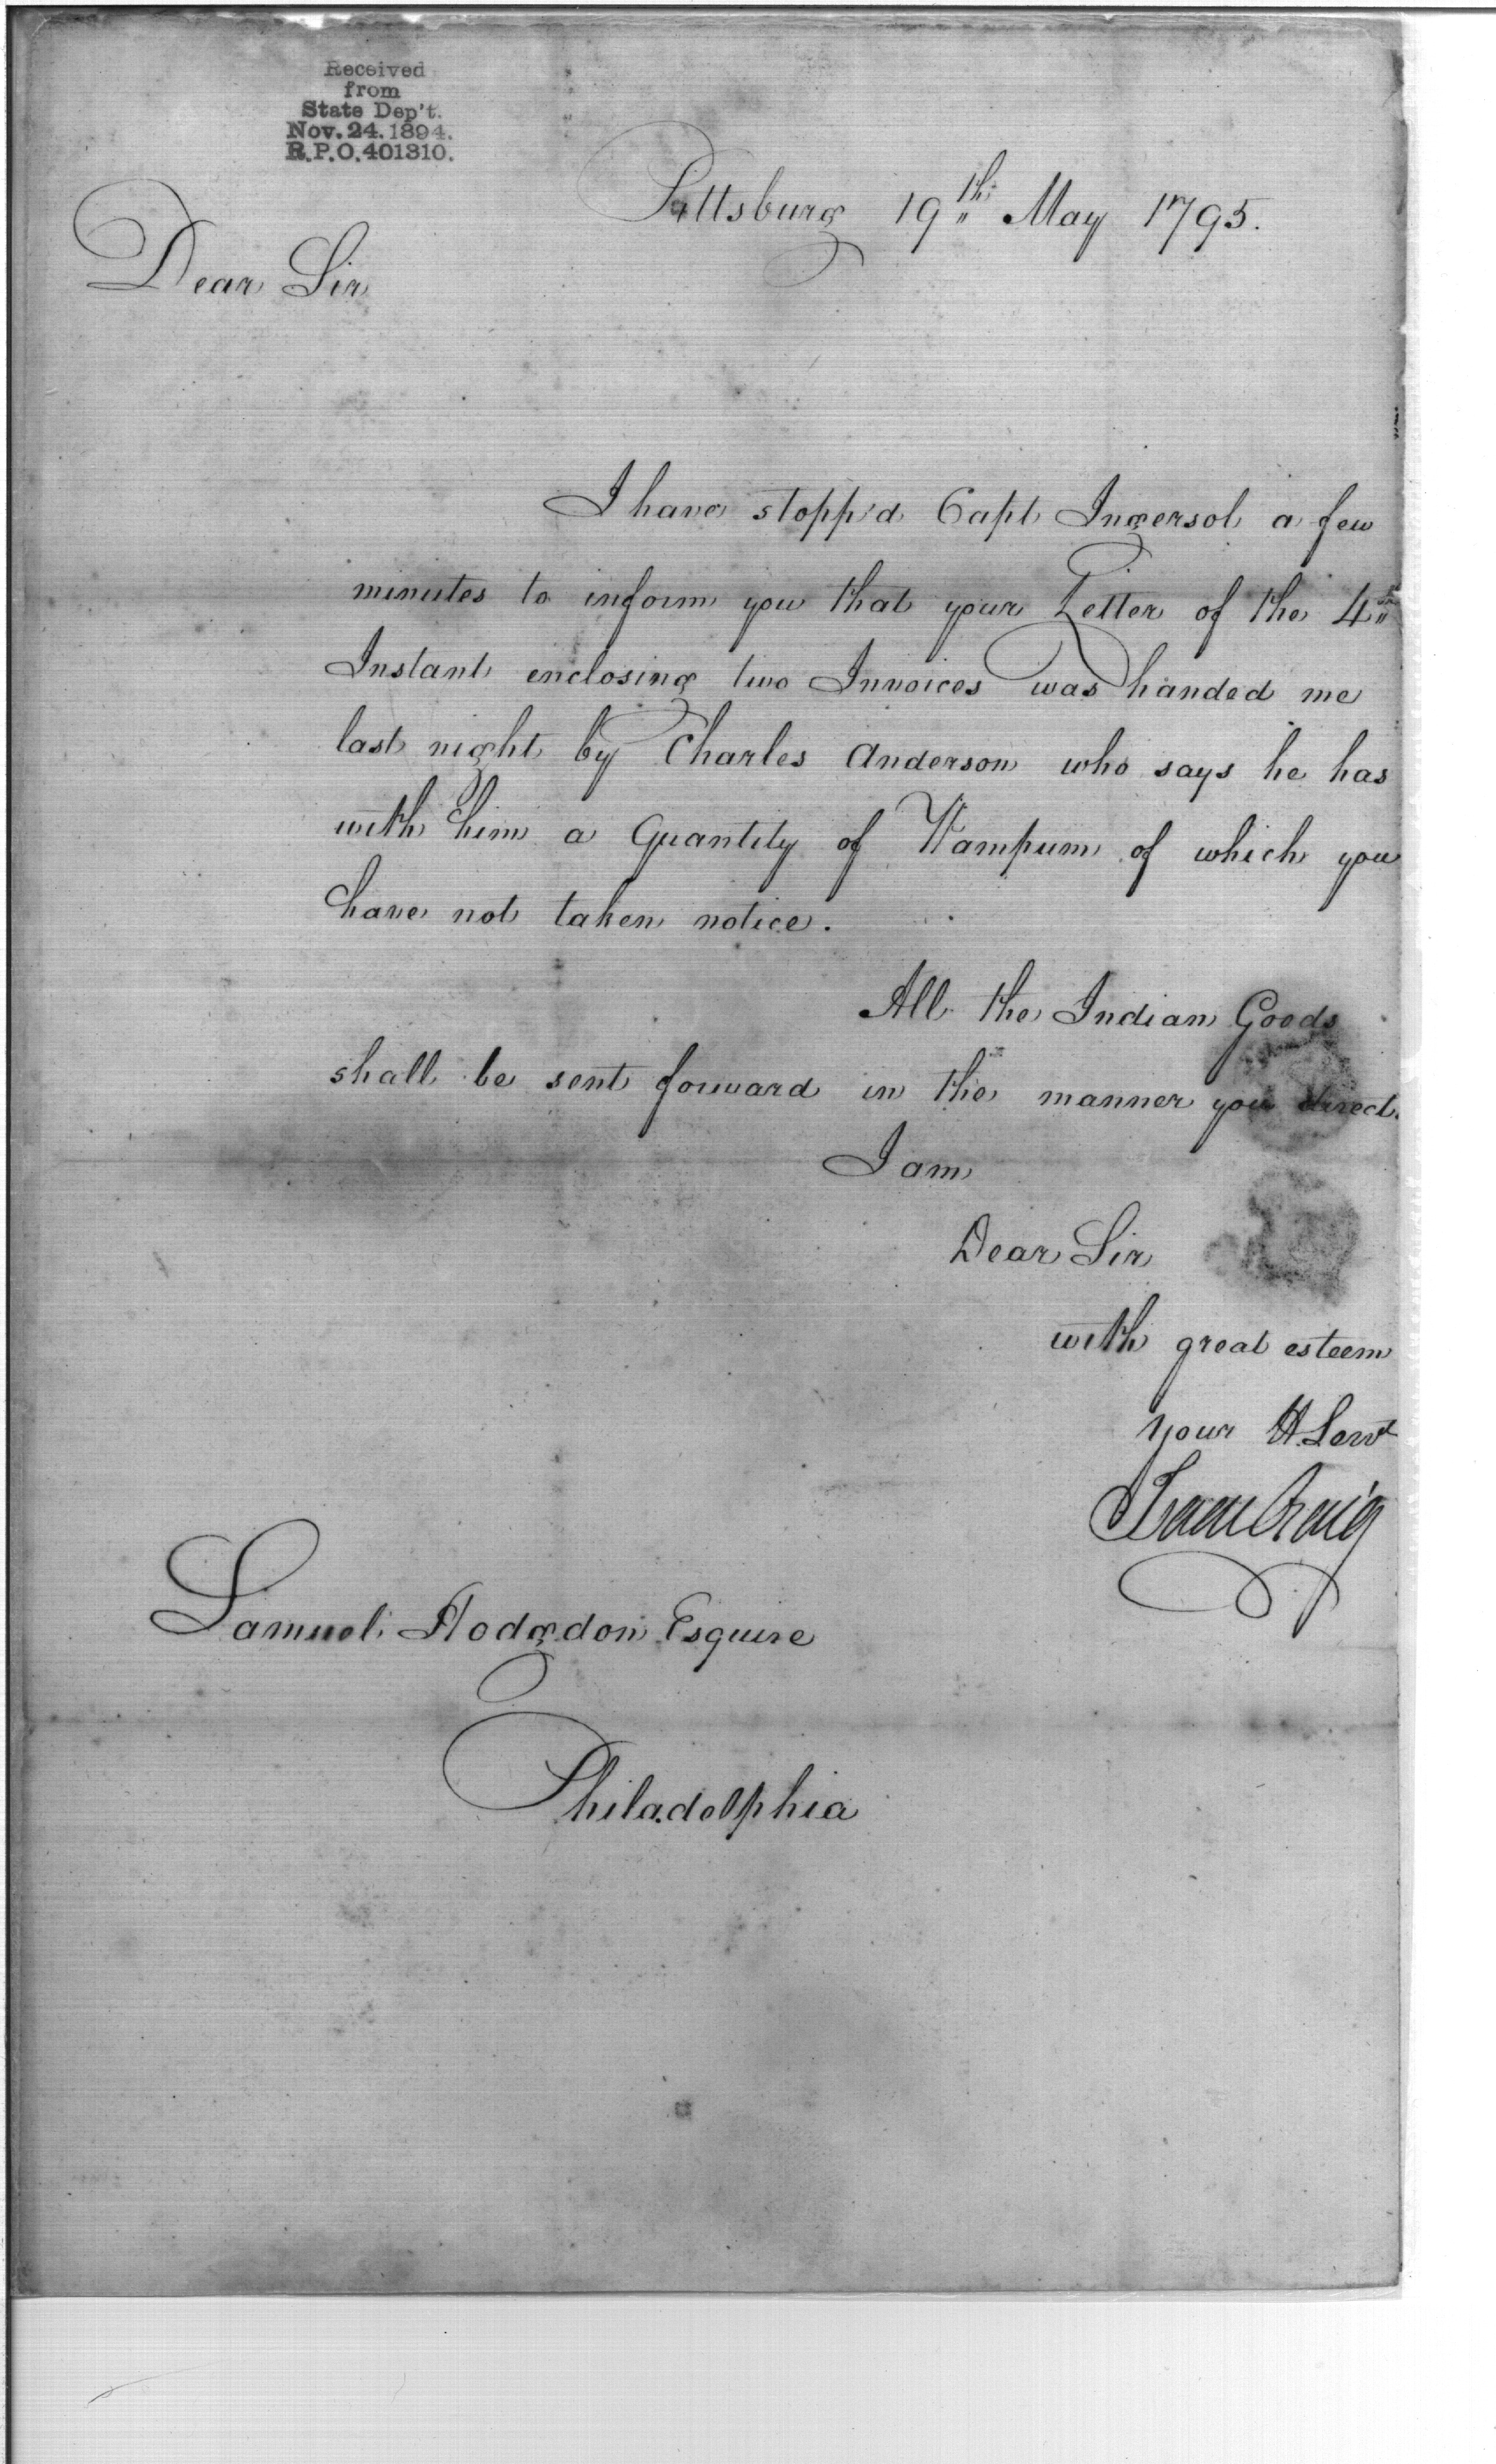 Received
from
State Dep't.
Nov. 24. 1894.
R.P.O. 401310.
Pittsburg 19th May 1795.
Dear Sir
I have stopp'd Capt Ingersol a few
minutes to inform you that your Letter of the 4th
Instant enclosing two Invoices was handed me
last night by Charles Anderson who says he has
with him a Quantity of Wampum of which you
have not taken notice.
All the Indian Goods
shall be sent forward in the manner you direct.
I am
Dear Sir
with great esteem
your H. Servt
Isaac Craig
Samuel Hodgdon Esquire
Philadelphia